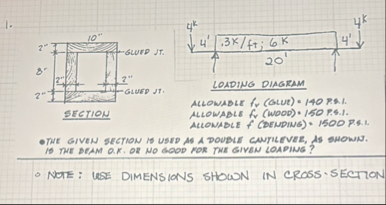 1.
10"
2"
GLUED JT.
8"
2"
2"
2"
GLUED JT.
SECTION
4ᵏ
4ᵏ
4'
.3K/ft; 6K
4'
20'
LOADING DIAGRAM
ALLOWABLE fᵥ (GLUE) = 140 P.S.I.
ALLOWABLE fᵥ (WOOD) = 150 P.S.I.
ALLOWABLE f (BENDING) = 1500 P.S.I.
• THE GIVEN SECTION IS USED AS A DOUBLE CANTILEVER, AS SHOWN.
IS THE BEAM O.K. OR NO GOOD FOR THE GIVEN LOADING?
○ NOTE: USE DIMENSIONS SHOWN IN CROSS-SECTION